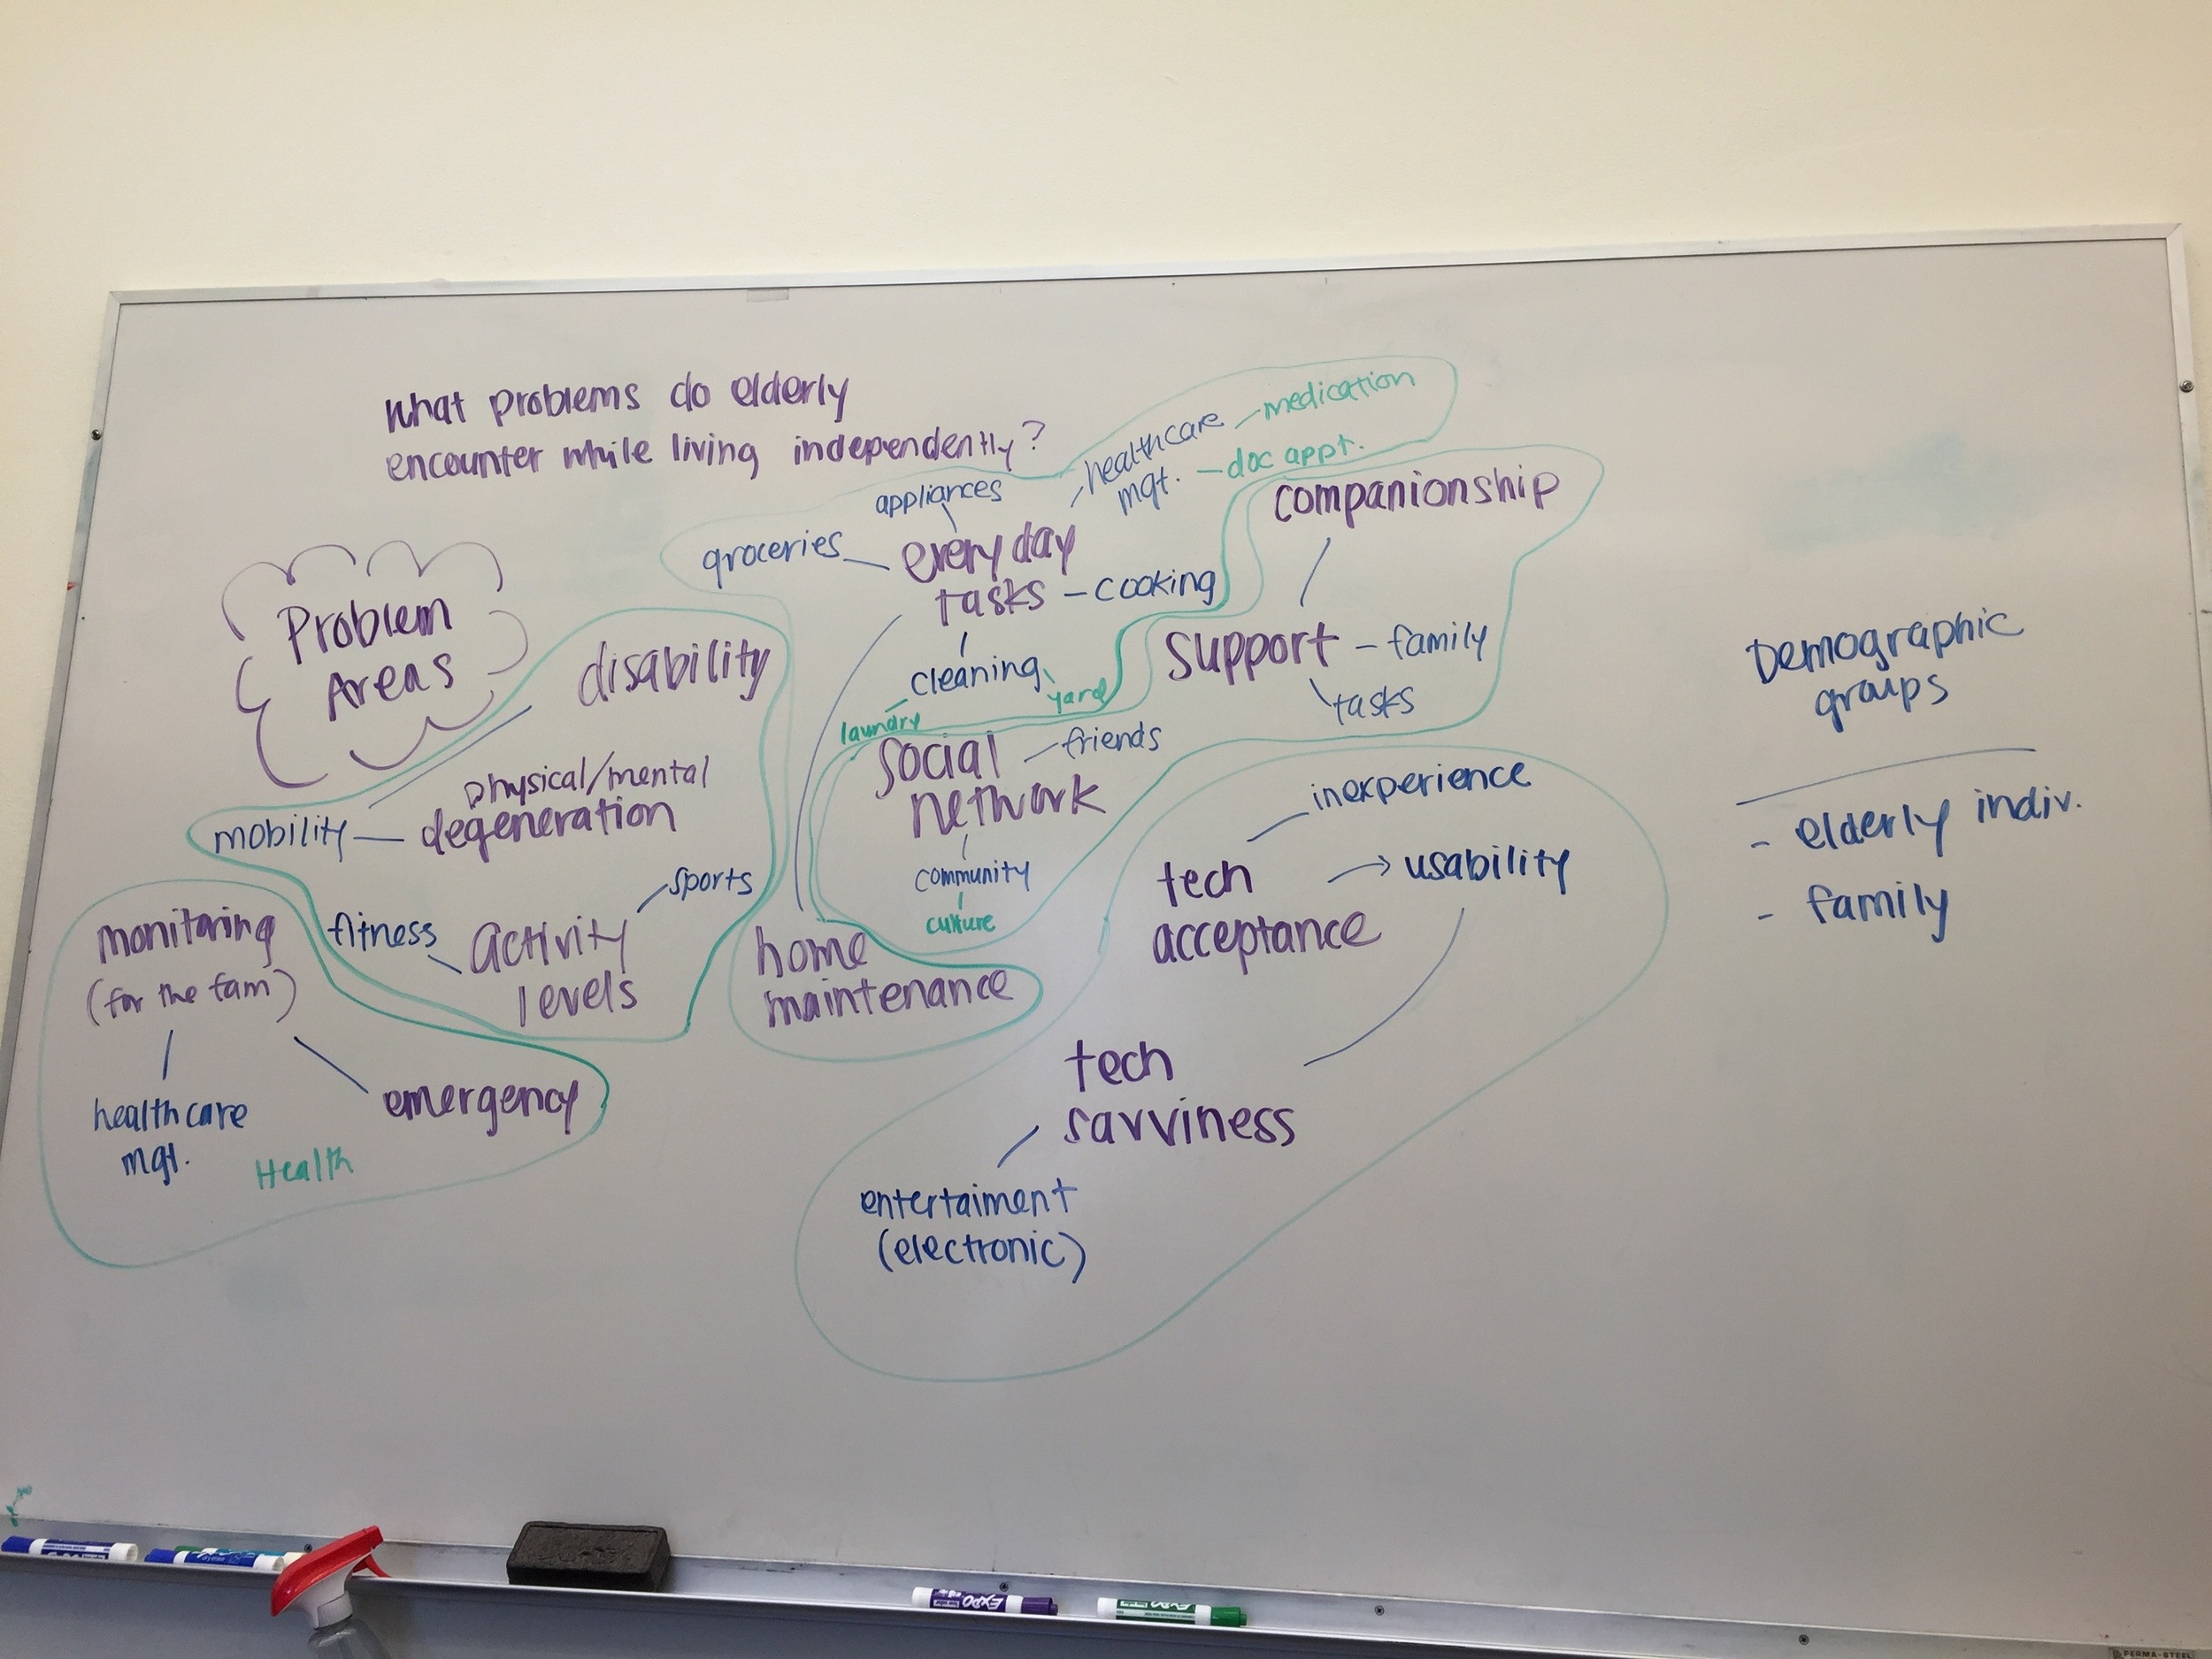 What problems do elderly
encounter while living independently?
Problem
Areas
healthcare
mgt.
medication
doc appt.
appliances
groceries
everyday
tasks
cooking
cleaning
laundry
yard
companionship
support
family
tasks
disability
physical/mental
degeneration
mobility
sports
fitness
activity
levels
social
network
friends
community
culture
home
maintenance
monitoring
(for the fam)
healthcare
mgt.
emergency
Health
inexperience
tech
acceptance
usability
tech
savviness
entertaiment
(electronic)
Demographic
groups
- elderly indiv.
- family
EXPO
EXPO
PERMA-STEEL